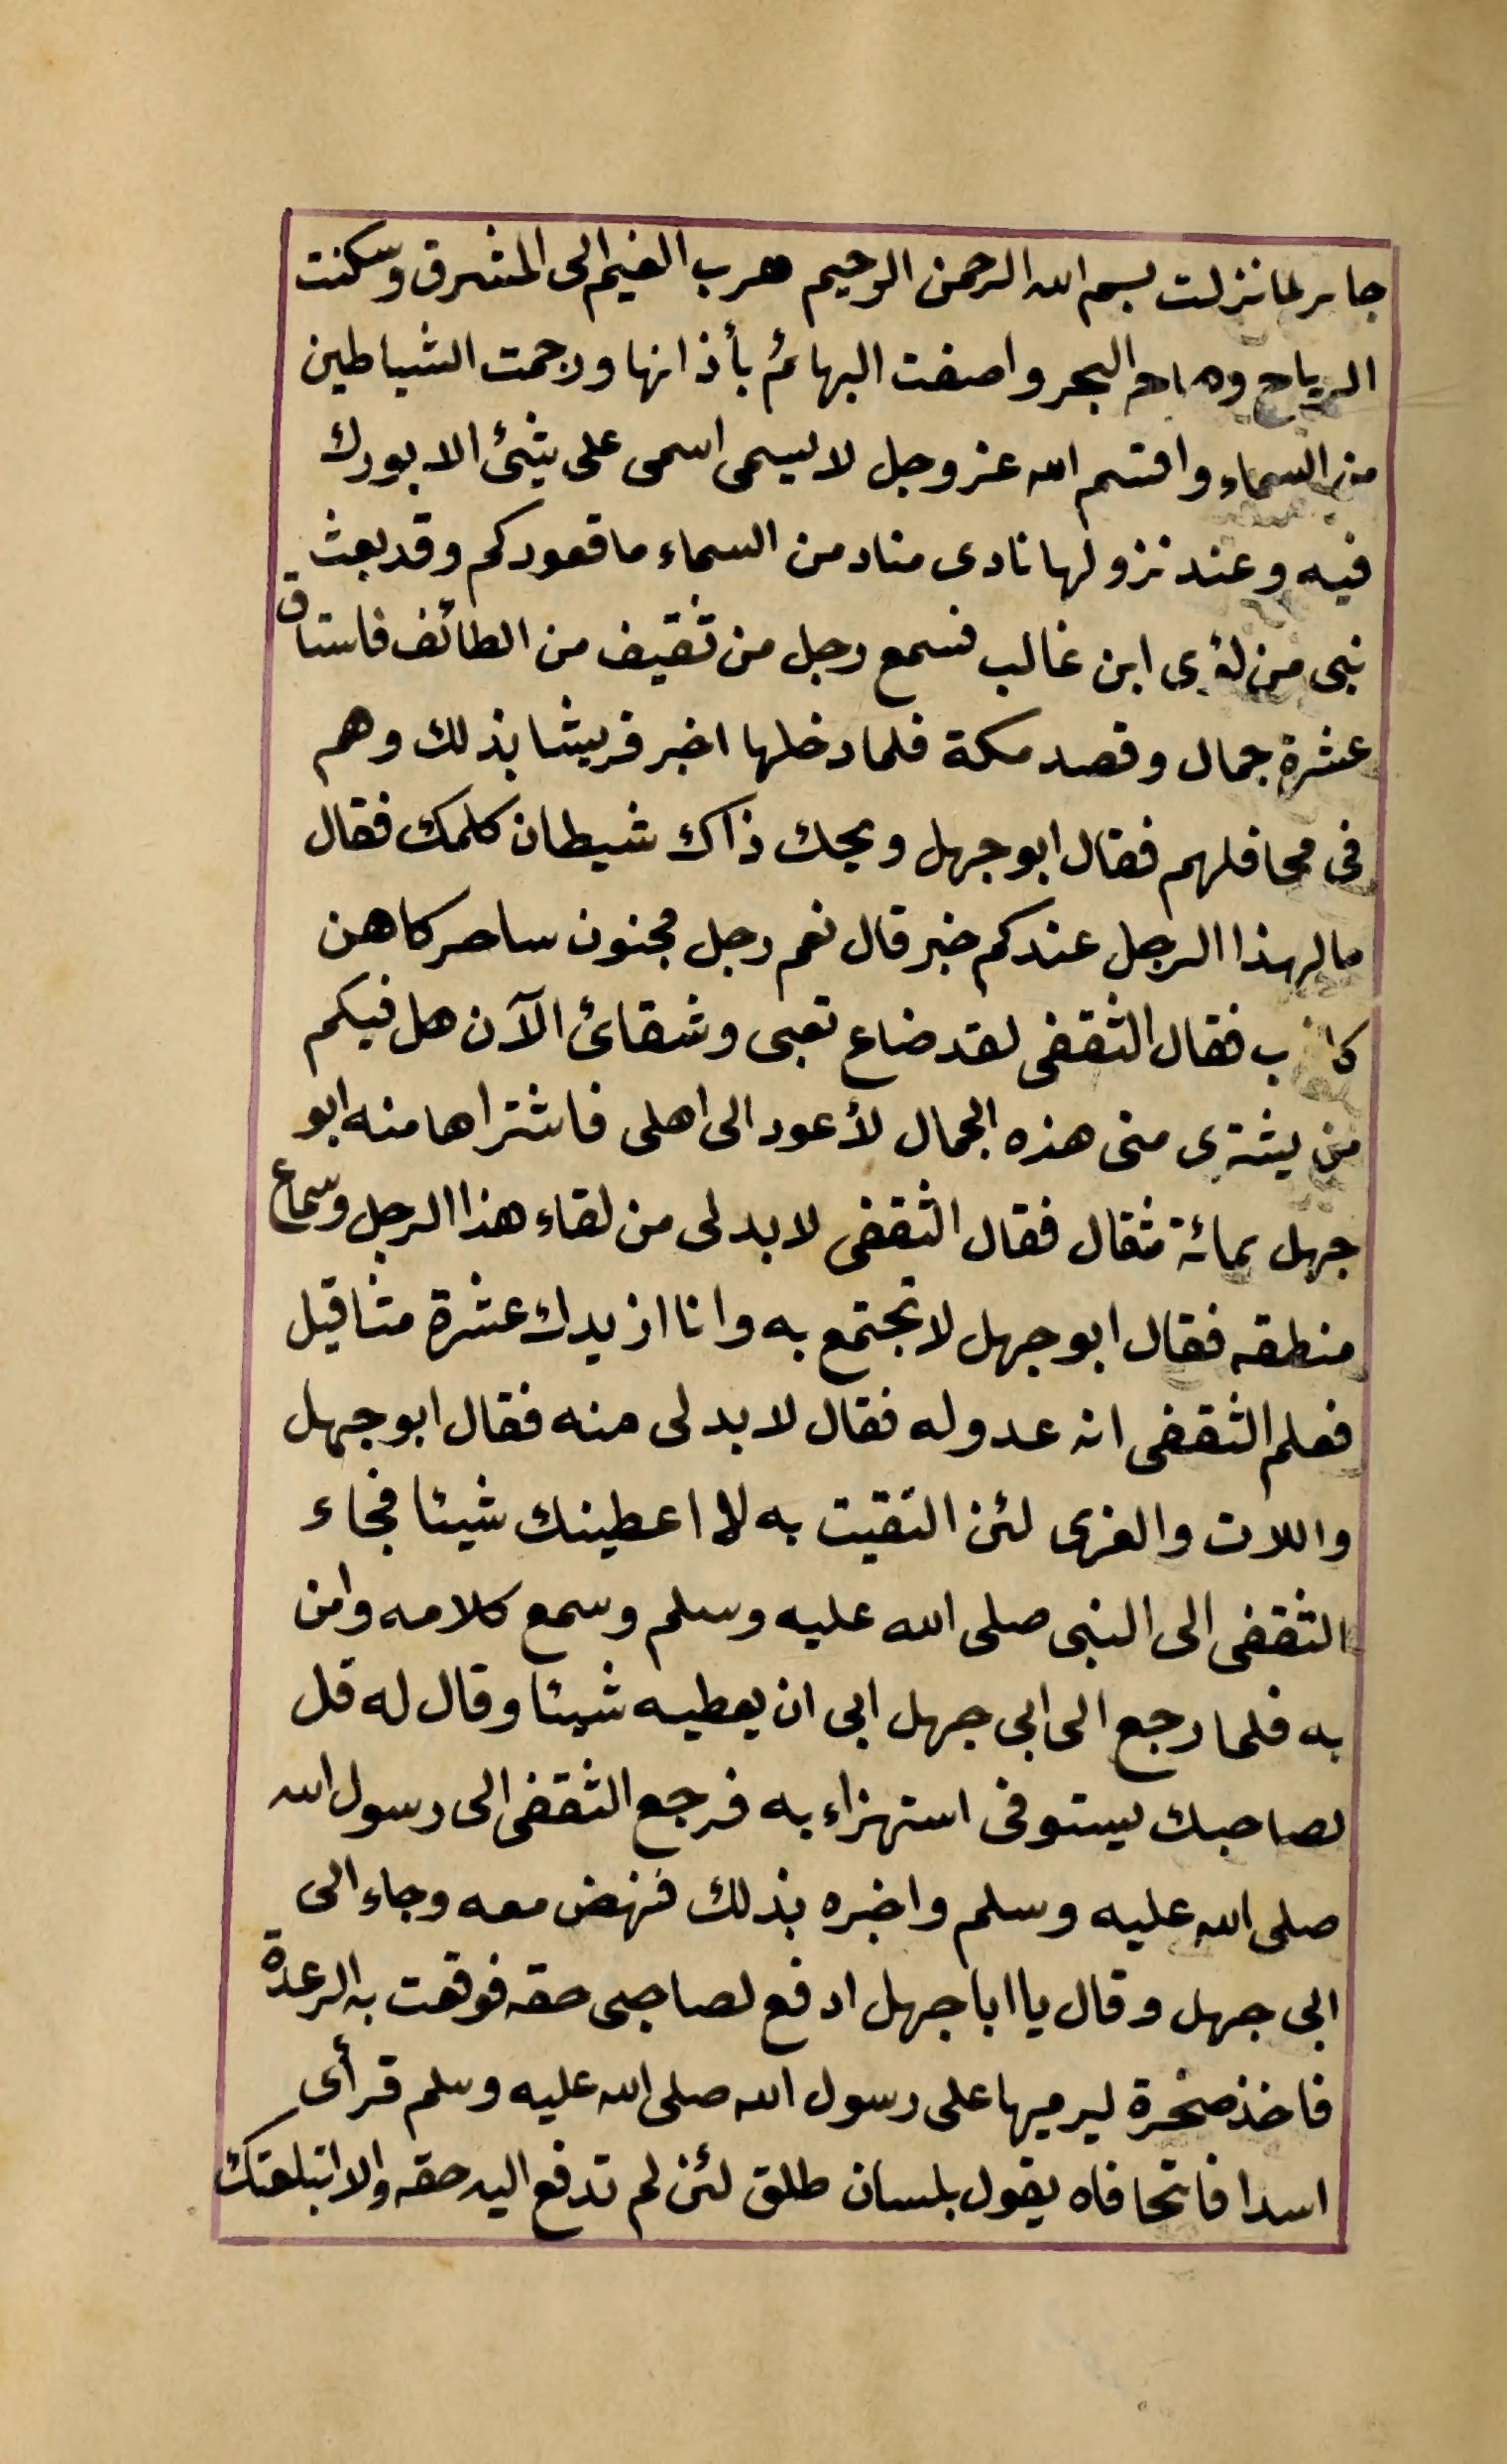 جابر لما نزلت بسم الله الرحمن الرحيم هرب الغيم الى المشرق وسكنت
الرياح وهاج البحر واصغت البهائم بأذانها ورجمت الشياطين
من السماء واقسم الله عز وجل لا ليسمى اسمى على شئ الا بورك
فيه وعند نزولها نادى مناد من السماء ما قعودكم وقد بعث
نبى من لؤى ابن غالب فسمع رجل من ثقيف من الطائف فاستاق
عشرة جمال وقصد مكة فلما دخلها اخبر قريشا بذلك وهم
فى محافلهم فقال ابو جهل ويحك ذاك شيطان كلمك فقال
ما لهذا الرجل عندكم خبر قال نعم رجل مجنون ساحر كاهن
كاذب فقال الثقفى لقد ضاع تعبى وشقائى الآن هل فيكم
من يشترى منى هذه الجمال لأعود الى اهلى فاشتراها منه ابو
جهل بمائة مثقال فقال الثقفى لا بد لى من لقاء هذا الرجل وسماع
منطقه فقال ابو جهل لا تجتمع به وانا ازيدك عشرة مثاقيل
فعلم الثقفى انه عدو له فقال لا بد لى منه فقال ابو جهل
واللات والعزى لئن التقيت به لا اعطينك شيئا فجاء
الثقفى الى النبى صلى الله عليه وسلم وسمع كلامه وامن
به فلما رجع الى ابى جهل ابى ان يعطيه شيئا وقال له قل
لصاحبك يستوفى استهزاء به فرجع الثقفى الى رسول الله
صلى الله عليه وسلم واخبره بذلك فنهض معه وجاء الى
ابى جهل وقال يا ابا جهل ادفع لصاحبى حقه فوقعت به الرعدة
فاخذ صخرة ليرميها على رسول الله صلى الله عليه وسلم فرأى
اسدا فاتحا فاه يقول بلسان طلق لئن لم تدفع اليه حقه والا ابتلعتك